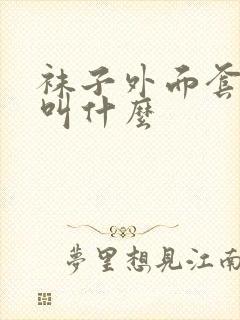 袜子外面套
叫什麼
夢里想見江南